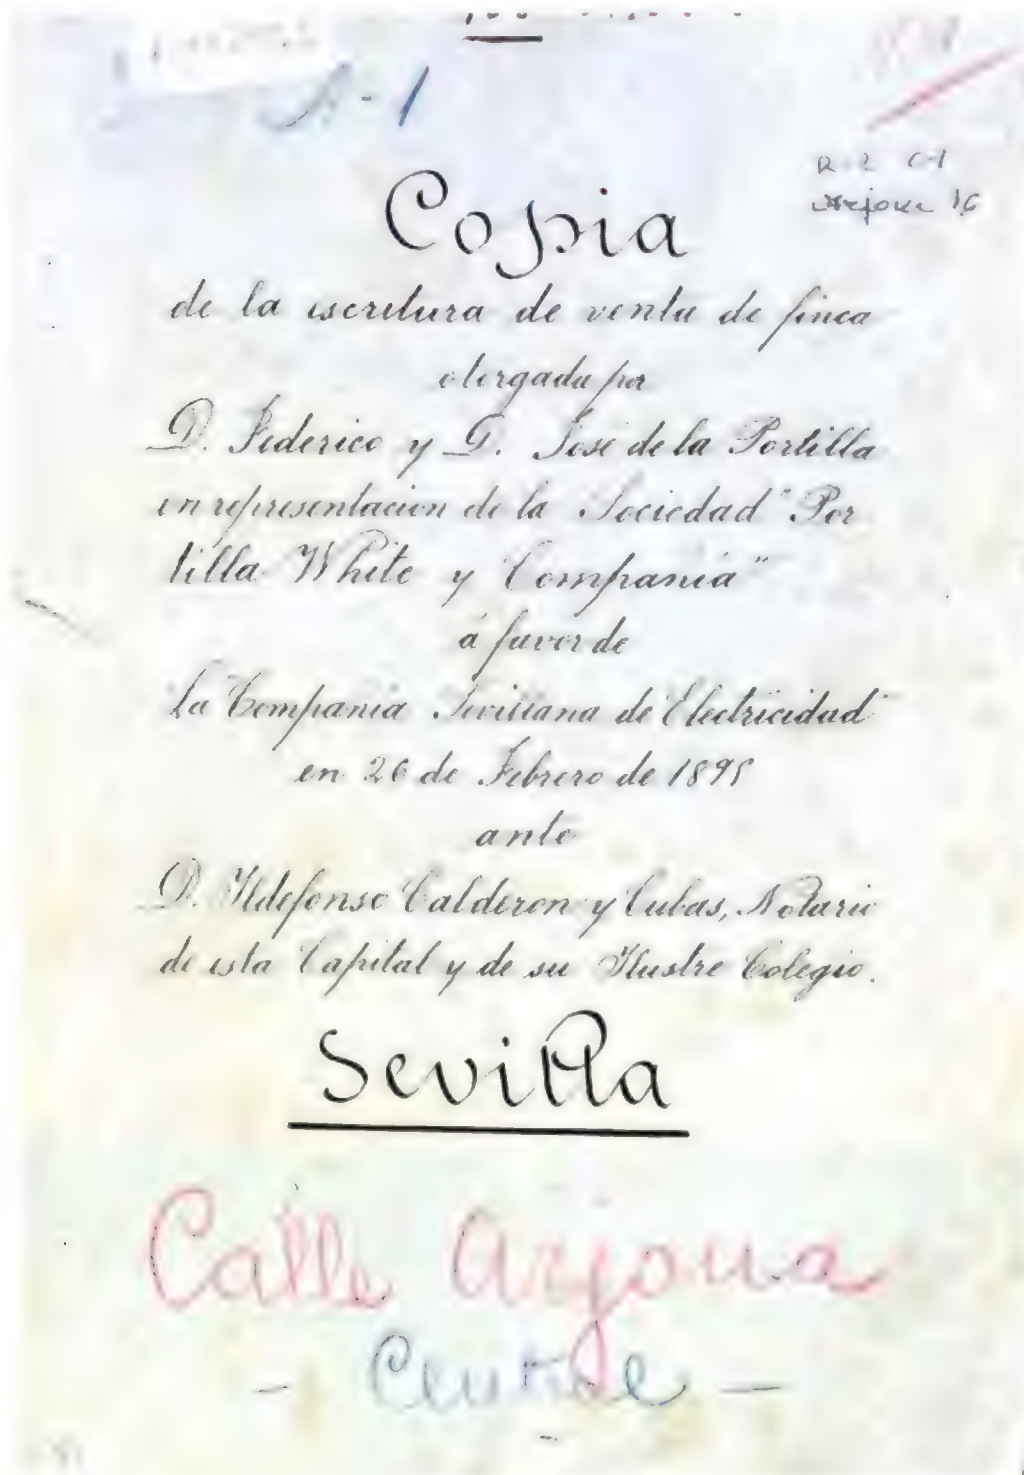 A-1
R-2 C-1
Arjona 16
Copia
de la escritura de venta de finca
otorgada por
D. Federico y D. José de la Portilla
en representacion de la Sociedad "Por
tilla White y Compañia"
á favor de
La "Compañia Sevillana de Electricidad"
en 26 de Febrero de 1895
ante
D. Ildefonso Calderon y Cubas, Notario
de esta Capital y de su Ilustre Colegio.
Sevilla
Calle Arjona
- Central -